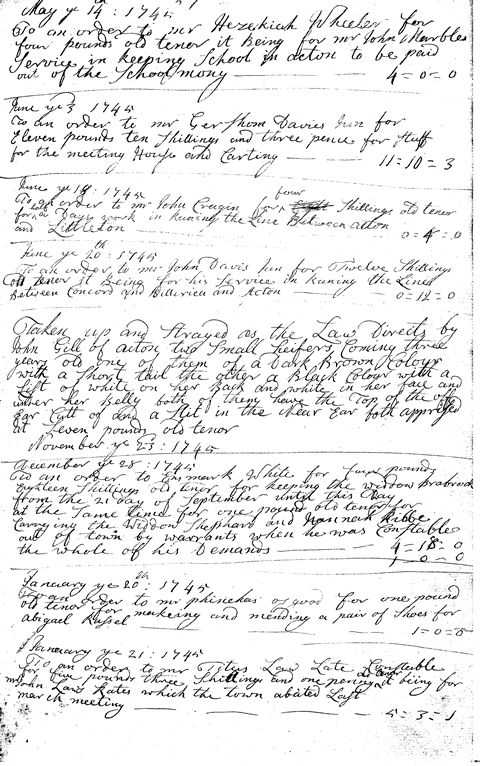 May ye 14 : 1745
To an order to mr Hezekiah Wheeler for
four pounds old tenor it Being for mr John Marbles
Service in keeping School in acton to be paid
out of the School mony — 4=0=0
June ye 3 1745
To an order to mr Gershom Davies Jun for
Eleven pounds ten Shillings and three pence for Stuff
for the meeting House and Carting — 11=10=3
June ye 18 : 1745
To an order to mr John Cragin for four Shillings old tenor
for half a Days work in runing the Line Between acton
and Littleton 0=4=0
June ye 20th : 1745
To an order to mr John Davis Jun for Twelve Shillings
old tenor it Being for his Service in runing the Lines
Between Concord and Billerica and Acton — 0=12=0
Taken up and Strayed as the Law Directs by
John Gill of acton two Small heifers Coming three
years old one of them of a Dark Brown Colour
with a Short tail the other a Black Colour with a
List of white on her Back and white in her face and
under her Belly both of them have the Top of the off
Ear Cutt of and a Slit in the Near Ear both apprised
at Eleven pounds old tenor
November ye 23 : 1745
December ye 28 : 1745
To an order to mark White for four pounds
Eighteen Shillings old tenor for keeping the widdow
from the 21 day of September until this Day
at the Same time for one pound old tenor for
Carrying the Widdow Shephard and Hannah
out of town by warrants when he was Constable
the whole of his Demands — 4=18=0
1=0=0
January ye 20th : 1745
To an order to mr phinehas osgood for one pound
old tenor for makeing and mending a pair of Shoes for
abigail Russel 1=0=0
January ye 21 : 1745
To an order to mr Titus Law Late Constable
for five pounds three Shillings and one penny old tenor it being for
mr John Laws Rates which the town abated Last
march meeting — 5=3=1